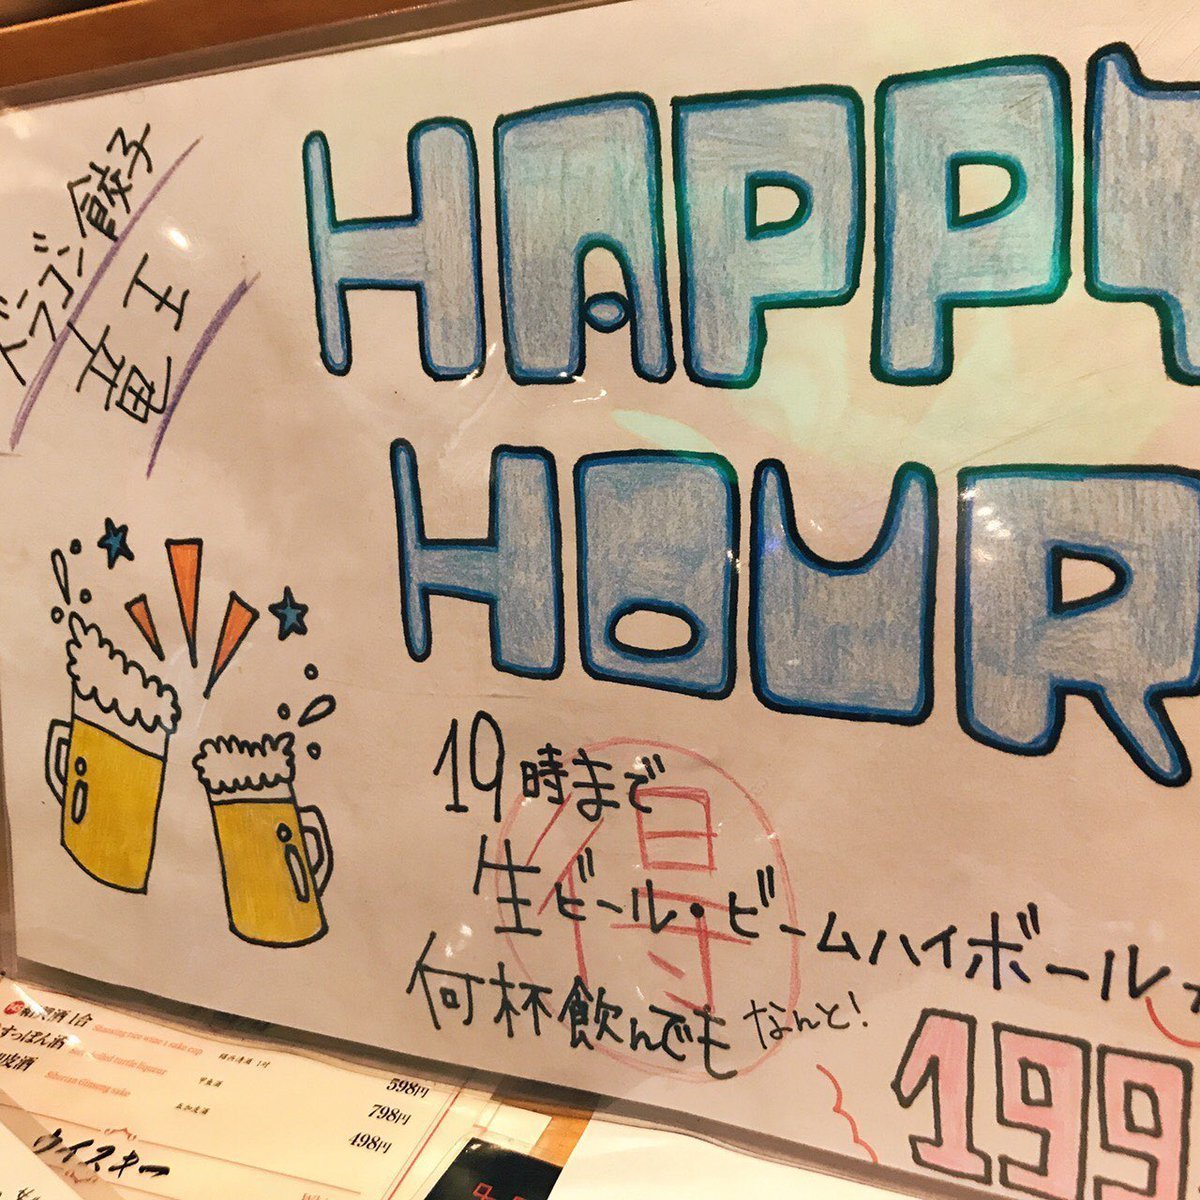 ドラゴン餃子
竜王
HAPPY
HOUR
19時まで
得
生ビール・ビームハイボール
何杯飲んでも なんと!
199
紹興酒1合
Shaoxing rice wine 1 sake cup
すっぽん酒
598円
皮酒
Siberian Ginseng sake
798円
498円
ウイスキー